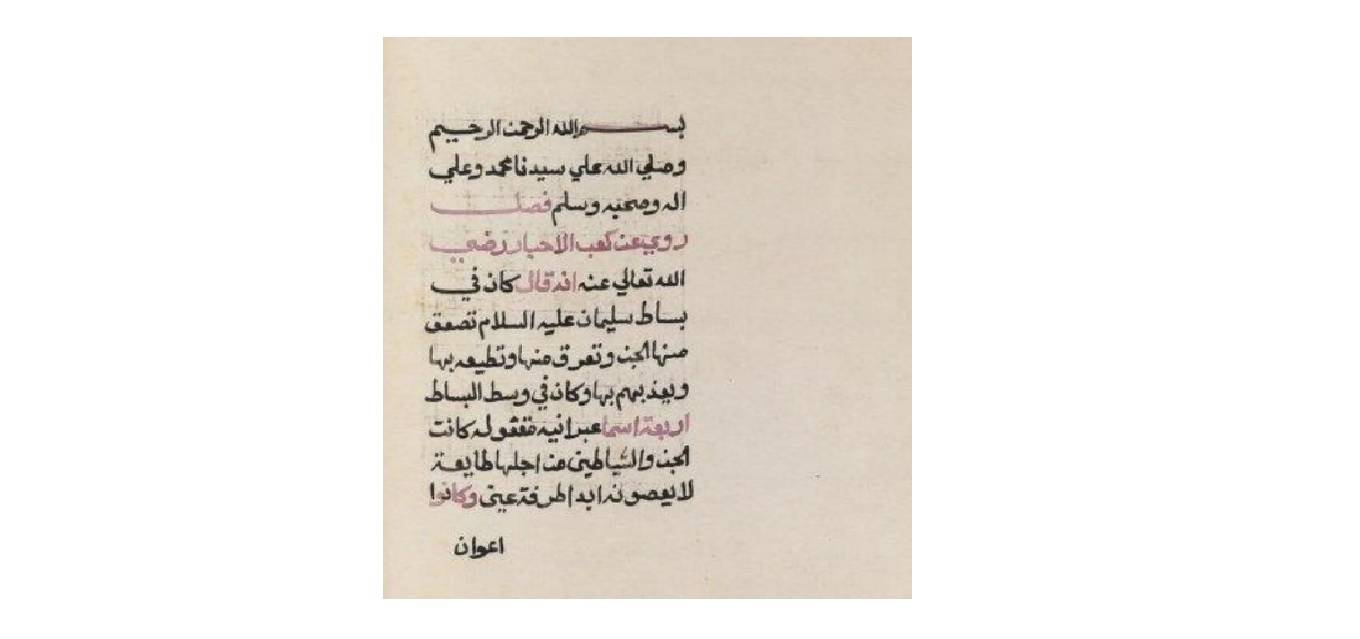 بسم الله الرحمن الرحيم
وصلي الله علي سيدنا محمد وعلي
اله وصحبه وسلم فصل
روي عن كعب الاحبار رضي
الله تعالي عنه انه قال كان في
بساط سليمان عليه السلام تصعق
منها الجن وتفرق منها وتطيعه بها
ويعذبهم بها وكان في وسط البساط
اربعة اسما عبرانيه كانت
الجن والشياطين من اجلها طايعة
لا يعصونه ابدا طرفة عين وكانوا
اعوان